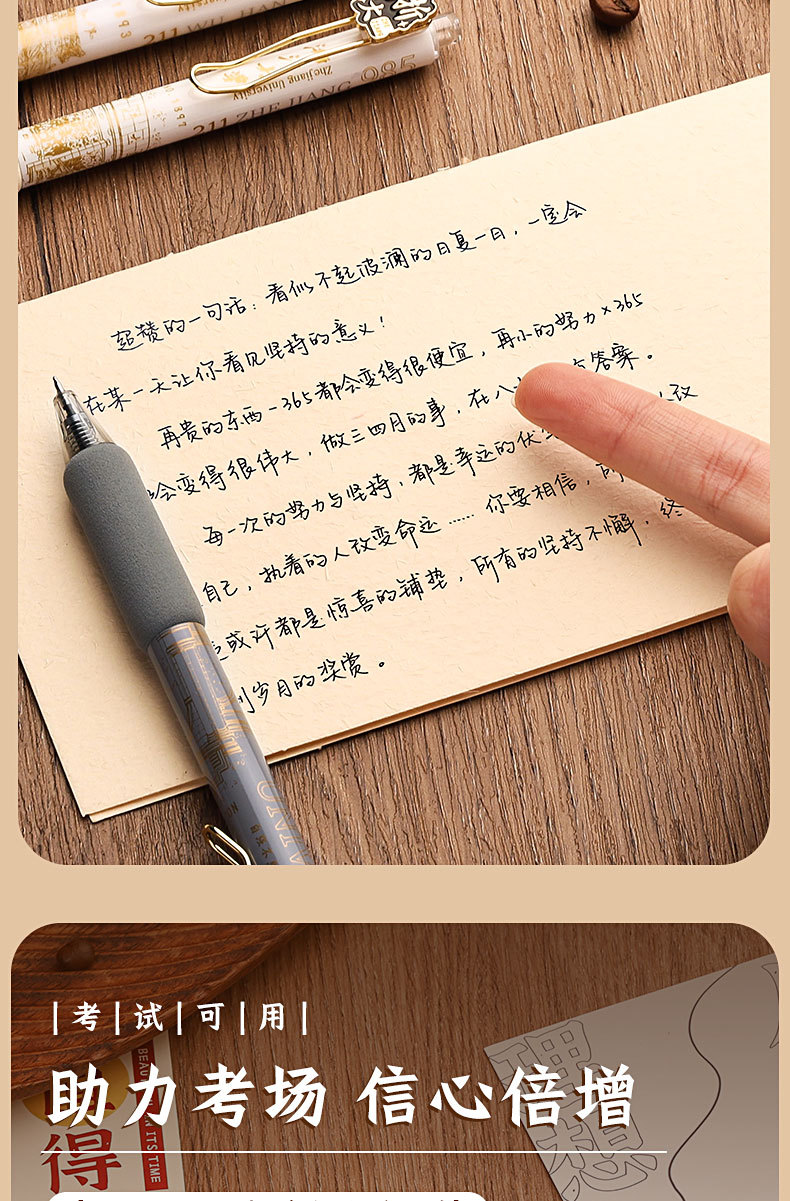 1893
211 WU HAN
浙大
Zhejiang University
1897
211 ZHE JIANG 985
超赞的一句话：看似不起波澜的日复一日，一定会
在某一天让你看见坚持的意义！
再贵的东西÷365都会变得很便宜，再小的努力×365
会变得很伟大，做三四月的事，在八 有答案。
每一次的努力与坚持，都是幸运的伏 改
自己，执着的人改变命运…… 你要相信，所
或许都是惊喜的铺垫，所有的坚持不懈，终
到岁月的奖赏。
|考|试|可|用|
助力考场 信心倍增
得
ITS TIME
理想